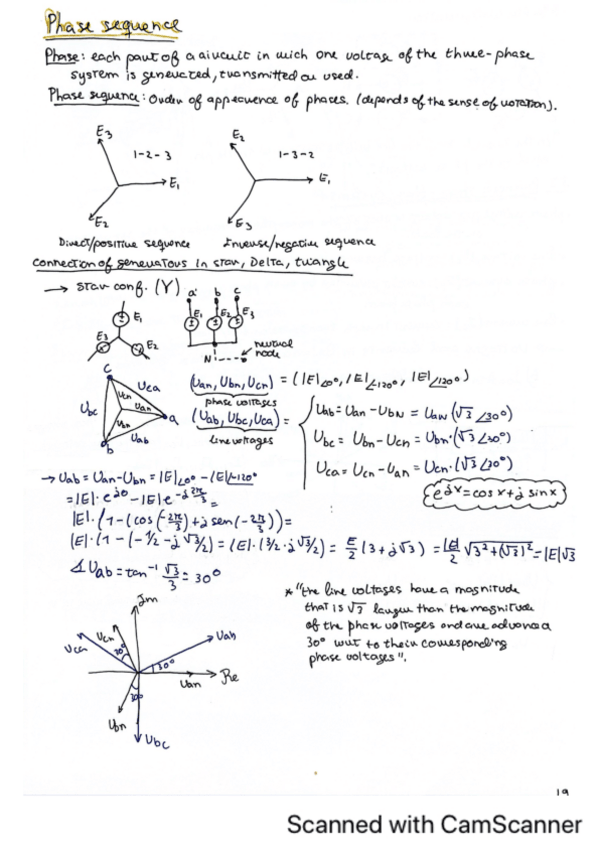 Phase sequence
Phase: each part of a circuit in wich one voltage of the three-phase
system is generated, transmitted or used.
Phase sequence: Order of appearence of phases. (depends of the sense of rotation).
E3
1-2-3
E1
E2
E2
1-3-2
E1
E3
Direct/positive sequence
Inverse/negative sequence
connection of generators in star, Delta, triangle
→ star conf. (Y)
a b c
E1 E2 E3
E1
E3 E2
N
neutral
node
c
Uca
Ucn
Uan
Ubc
Ubn
a
b
Uab
(Uan, Ubn, Ucn) = (|E|∠0°, |E|∠-120°, |E|∠120°)
phase voltages
(Uab, Ubc, Uca) =
line voltages
Uab = Uan - UbN = UaN (√3 ∠30°)
Ubc = Ubn - Ucn = Ubn·(√3 ∠30°)
Uca = Ucn - Uan = Ucn·(√3 ∠30°)
e^jx = cos x + j sin x
→ Uab = Uan - Ubn = |E|∠0° - |E|∠-120°
= |E|·e^j0 - |E|e^-j2π/3 =
|E|·(1-(cos(-2π/3)+j sen(-2π/3)) =
|E|·(1-(-1/2-j√3/2) = |E|·(3/2·j√3/2) = E/2 (3+j√3) = |E|/2 √3²+(√3)² = |E|√3
∡Uab = tan⁻¹ √3/3 = 30°
Jm
Uca
Ucn
30°
Uab
30°
Re
Uan
30°
Ubn
Ubc
* "the line voltages have a magnitude
that is √3 larger than the magnitude
of the phase voltages and are advanced
30° wrt to their corresponding
phase voltages".
19
Scanned with CamScanner